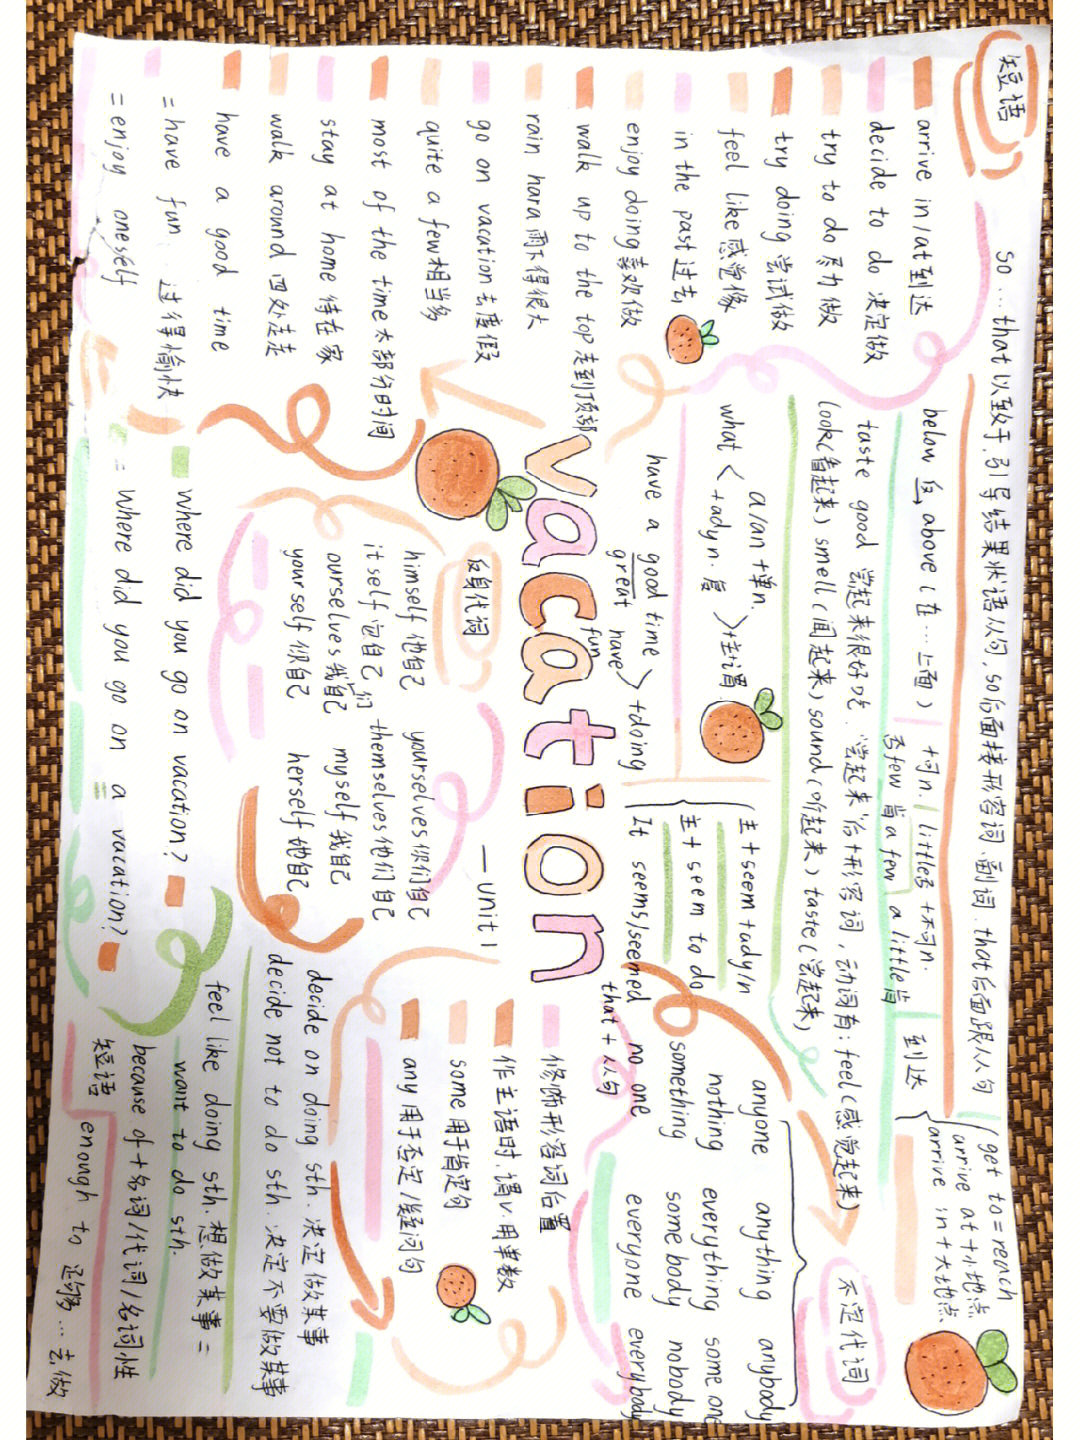 短语
arrive in/at到达
decide to do 决定做
try to do 尽力做
try doing 尝试做
feel like 感觉像
in the past 过去
enjoy doing 喜欢做
walk up to the top 走到顶部
rain hara 雨下得很大
go on vacation 去度假
quite a few 相当多
most of the time 大部分时间
stay at home 待在家
walk around 四处走
have a good time
= have fun 过得愉快
= enjoy oneself
so …that 以致于,引导结果状语从句, so后面接形容词、副词. that后面跟从句
below 反 above (在…上面)
+可n. little否 +不可n.
否few 肯a few a little肯
到达
get to=reach
arrive at +小地点
arrive in +大地点
taste good 尝起来很好吃. 尝起来后+形容词, 动词有: feel(感觉起来)
look(看起来) smell(闻起来) sound(听起来) taste(尝起来)
what < a/an +单n.
+adyn. 复 > +主+谓
have a good time
great
have fun
have > +doing
主+seem +ady/n
主+ seem to do
It seems/seemed
that + 从句
不定代词
anyone anything anybody
nothing everything some one
something some body nobody
no one everyone everybody
vacation
—UNIT1
反身代词
himself 他自己 yourselves 你们自己
itself 它自己 themselves 他们自己
ourselves 我们自己 myself 我自己
yourself 你自己 herself 她自己
修饰形容词后置
作主语时,谓v.用单数
some 用于肯定句
any 用于否定/疑问句
where did you go on vacation?
= where did you go on a vacation?
decide on doing sth. 决定做某事
decide not to do sth. 决定不要做某事
feel like doing sth. 想做某事 =
want to do sth.
because of +名词/代词/名词性
短语
enough to 足够…去做